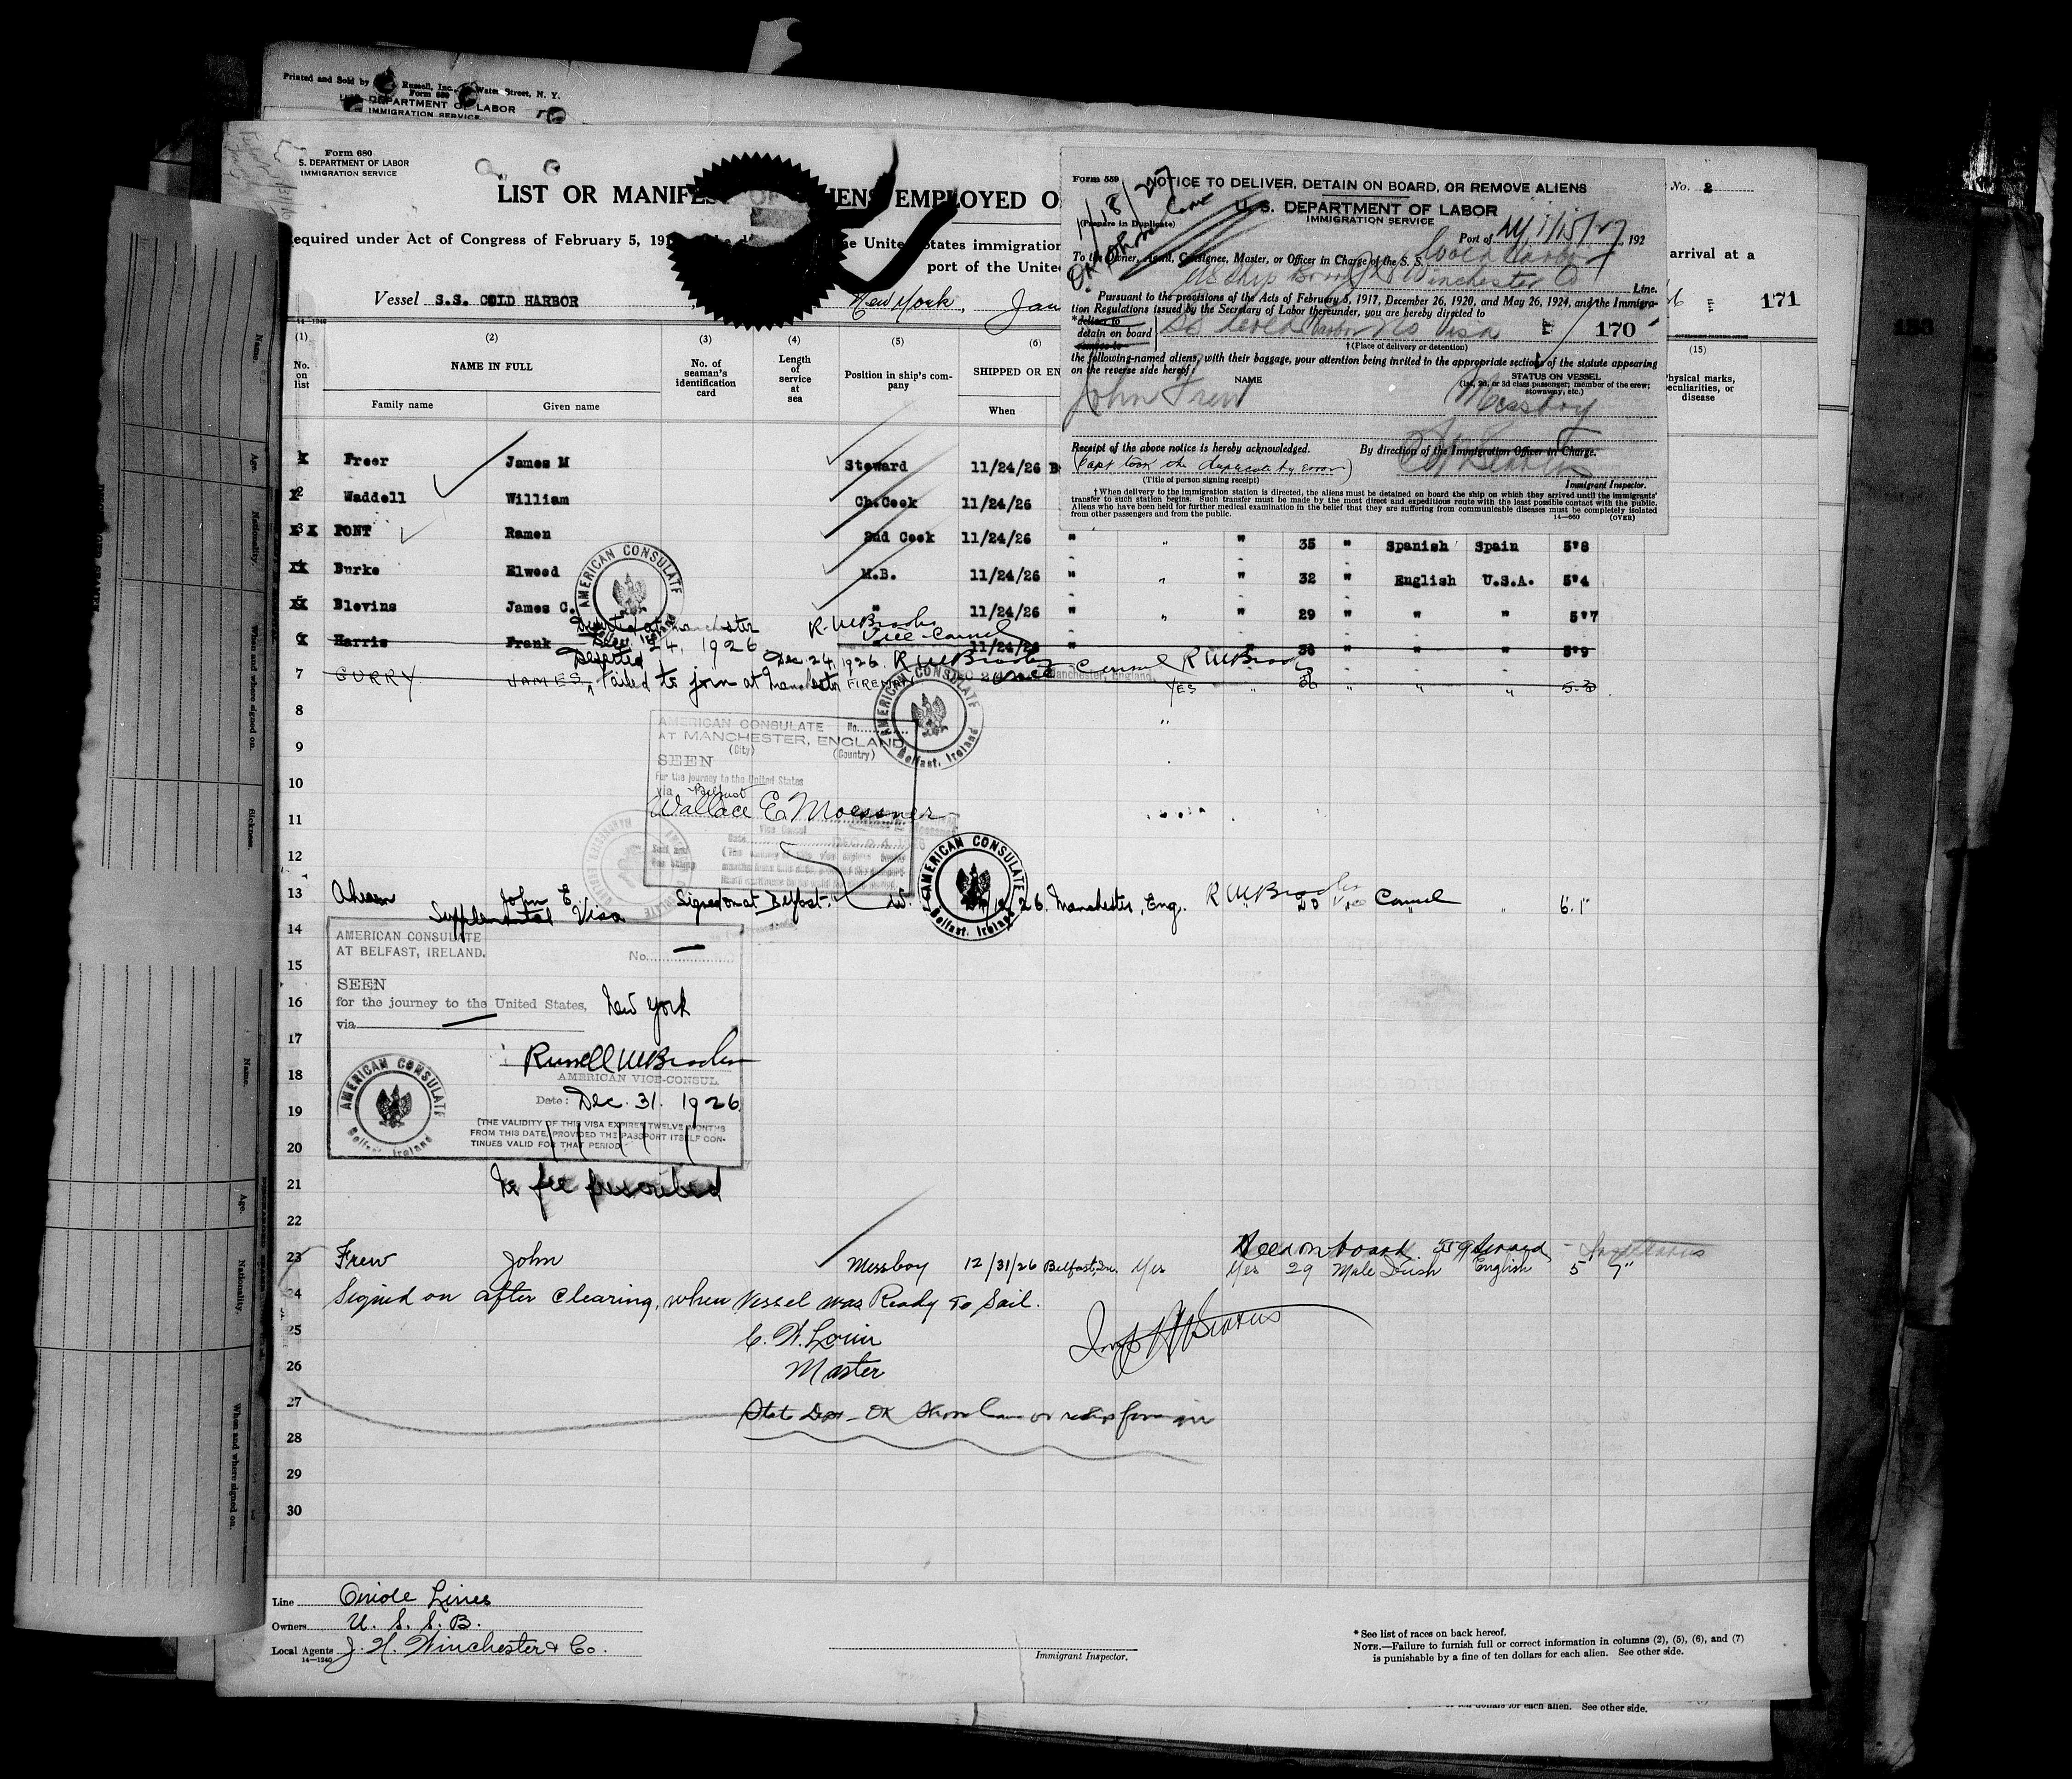 Printed and Sold by Russell, Inc., Water Street, N. Y.
Form 680
DEPARTMENT OF LABOR
IMMIGRATION SERVICE
Form 680
S. DEPARTMENT OF LABOR
IMMIGRATION SERVICE
LIST OR MANIFES OF ALIENS EMPLOYED O
No. 2
equired under Act of Congress of February 5, 191 the United States immigration
arrival at a
port of the Unite
Vessel S.S. COLD HARBOR
New York, Jan
171
14-1240
(1) (2) (3) (4) (5) (6) (15)
No. on list
NAME IN FULL
Family name Given name
No. of seaman's identification card
Length of service at sea
Position in ship's company
SHIPPED OR EN
When
Physical marks, peculiarities, or disease
Form 559
NOTICE TO DELIVER, DETAIN ON BOARD, OR REMOVE ALIENS
U. S. DEPARTMENT OF LABOR
IMMIGRATION SERVICE
(Prepare in Duplicate)
Port of NY 1/15/27 192
To the Owner, Agent, Consignee, Master, or Officer in Charge of the S. S. Cold Harbor
Winchester Co Line.
Pursuant to the provisions of the Acts of February 5, 1917, December 26, 1920, and May 26, 1924, and the Immigra-
tion Regulations issued by the Secretary of Labor thereunder, you are hereby directed to
*deliver to
detain on board
remove to
SS Cold Harbor No Visa
170
†(Place of delivery or detention)
the following-named aliens, with their baggage, your attention being invited to the appropriate sections of the statute appearing
on the reverse side hereof:
NAME
STATUS ON VESSEL
(1st, 2d, or 3d class passenger; member of the crew; stowaway, etc.)
John Frew Messboy
Receipt of the above notice is hereby acknowledged.
By direction of the Immigration Officer in Charge.
(Capt took the duplicate by error)
(Title of person signing receipt)
Immigrant Inspector.
†When delivery to the immigration station is directed, the aliens must be detained on board the ship on which they arrived until the immigrants'
transfer to such station begins. Such transfer must be made by the most direct and expeditious route with the least possible contact with the public.
Aliens who have been held for further medical examination in the belief that they are suffering from communicable diseases must be completely isolated
from other passengers and from the public.
14-660 (OVER)
1 Freer James M Steward 11/24/26 B
2 Waddell William Ch.Cook 11/24/26
3 X PONT Ramon 2nd Cook 11/24/26 " " " 35 " Spanish Spain 5'8
4 Burke Elwood M.B. 11/24/26 " " " 32 " English U.S.A. 5'4
5 Blevins James C. " 11/24/26 " " " 29 " " " 5'7
Deserted at Manchester R. W. Braden
6 Harris Frank Dec. 24, 1926 Vice Consul 11/24/26 " " 38 " " " 5'9
Deserted Dec 24, 1926. R W Braden Vice Consul R W Braden
7 CURRY JAMES, failed to join at Manchester FIREMAN Manchester, England YES " 36 " " " 5.8
AMERICAN CONSULATE
Belfast, Ireland
AMERICAN CONSULATE No.
AT MANCHESTER, ENGLAND
(City) (Country)
SEEN
for the journey to the United States
via Belfast
Wallace E. Moessner
Vice Consul
Date
AMERICAN CONSULATE
Belfast, Ireland
8
9
10
11
12
13 Ahearn John E. Signed on at Belfast. 26. Manchester, Eng. R W Braden Vice Consul 6'1"
Supplemental Visa
AMERICAN CONSULATE
Belfast, Ireland
14
15
16
17
18
19
20
21
22
AMERICAN CONSULATE
AT BELFAST, IRELAND.
No.
SEEN
for the journey to the United States, New York
via
Russell W Braden
AMERICAN VICE-CONSUL.
Date: Dec. 31. 1926
(THE VALIDITY OF THIS VISA EXPIRES TWELVE MONTHS
FROM THIS DATE, PROVIDED THE PASSPORT ITSELF CON-
TINUES VALID FOR THAT PERIOD.
AMERICAN CONSULATE
Belfast, Ireland
No fee prescribed
on board. 559 served
23 Frew John Messboy 12/31/26 Belfast, Ire. Yes Yes 29 Male Irish English 5 7"
24 Signed on after clearing, when Vessel was Ready to Sail.
25 C. W.
26 Master
27 State Dept - OK
28
29
30
Line Oriole Lines
Owners U. S. S. B.
Local Agents J. H. Winchester & Co.
14-1240
Immigrant Inspector.
* See list of races on back hereof.
NOTE.—Failure to furnish full or correct information in columns (2), (5), (6), and (7)
is punishable by a fine of ten dollars for each alien. See other side.
of ten dollars for each alien. See other side.